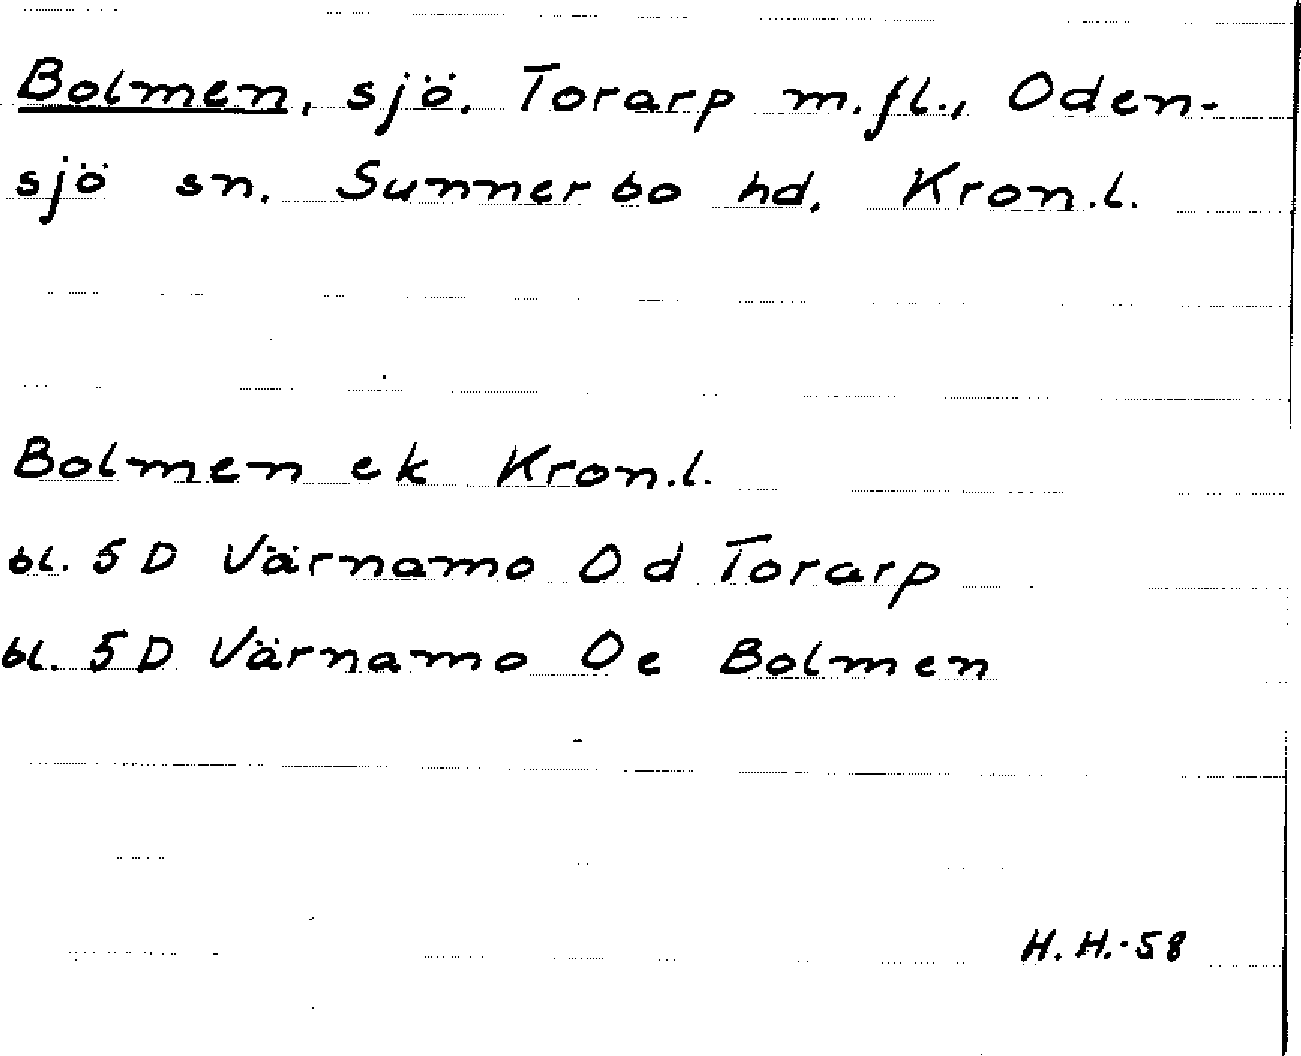 Bolmen, sjö. Torarp m.fl., Oden-
sjö sn. Sunnerbo hd. Kron.l.
Bolmen ek Kron.l.
bl. 5 D Värnamo 0 d Torarp
bl. 5 D Värnamo 0 e Bolmen
H. H. -58